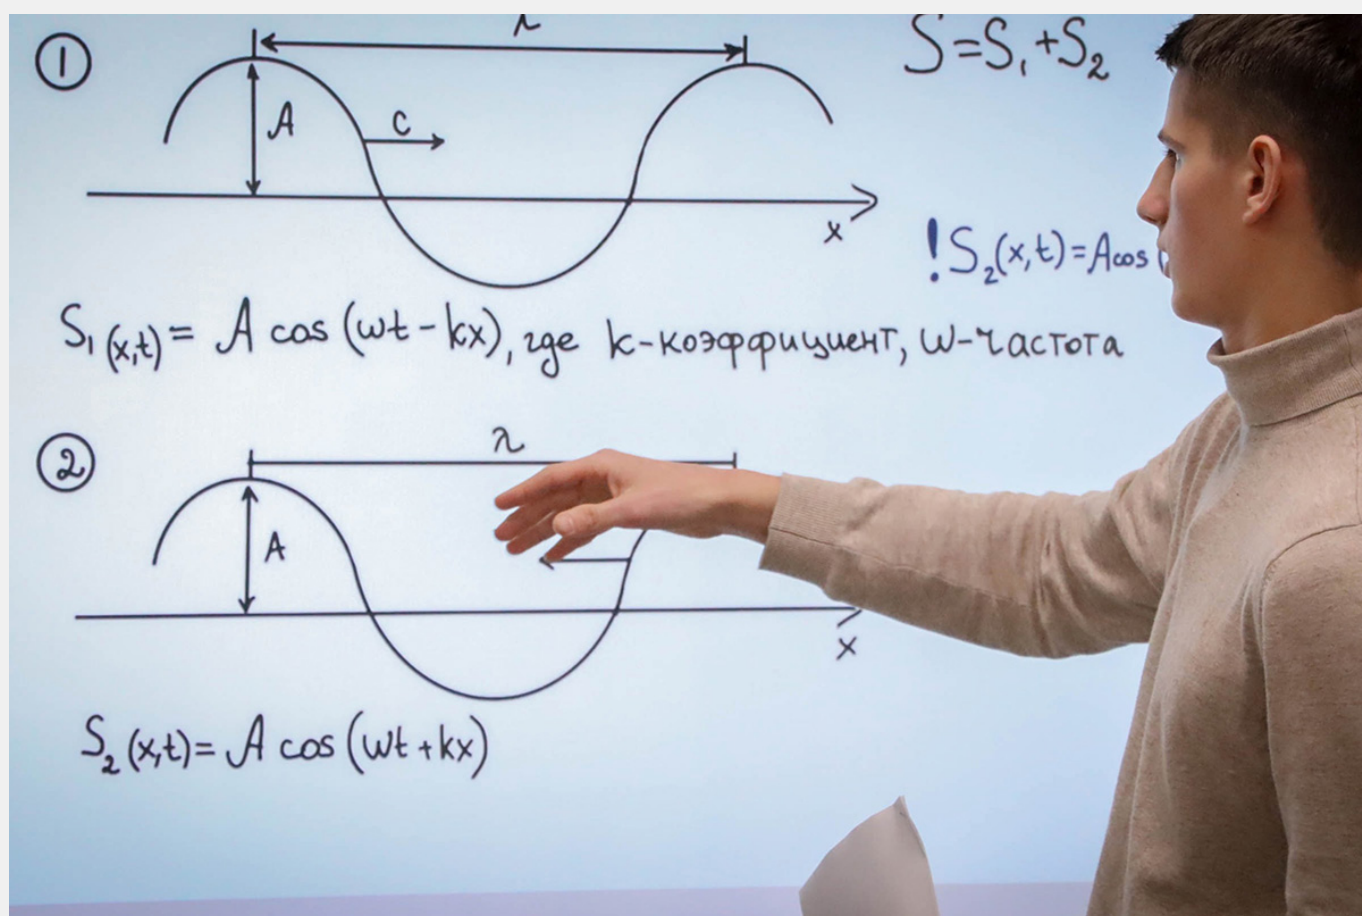 ①
λ
S=S₁+S₂
A
c
x
!S₂(x,t)=Acos (
S₁(x,t)= A cos (ωt-kx), где k-коэффициент, ω-частота
②
λ
A
x
S₂(x,t)= A cos (ωt+kx)